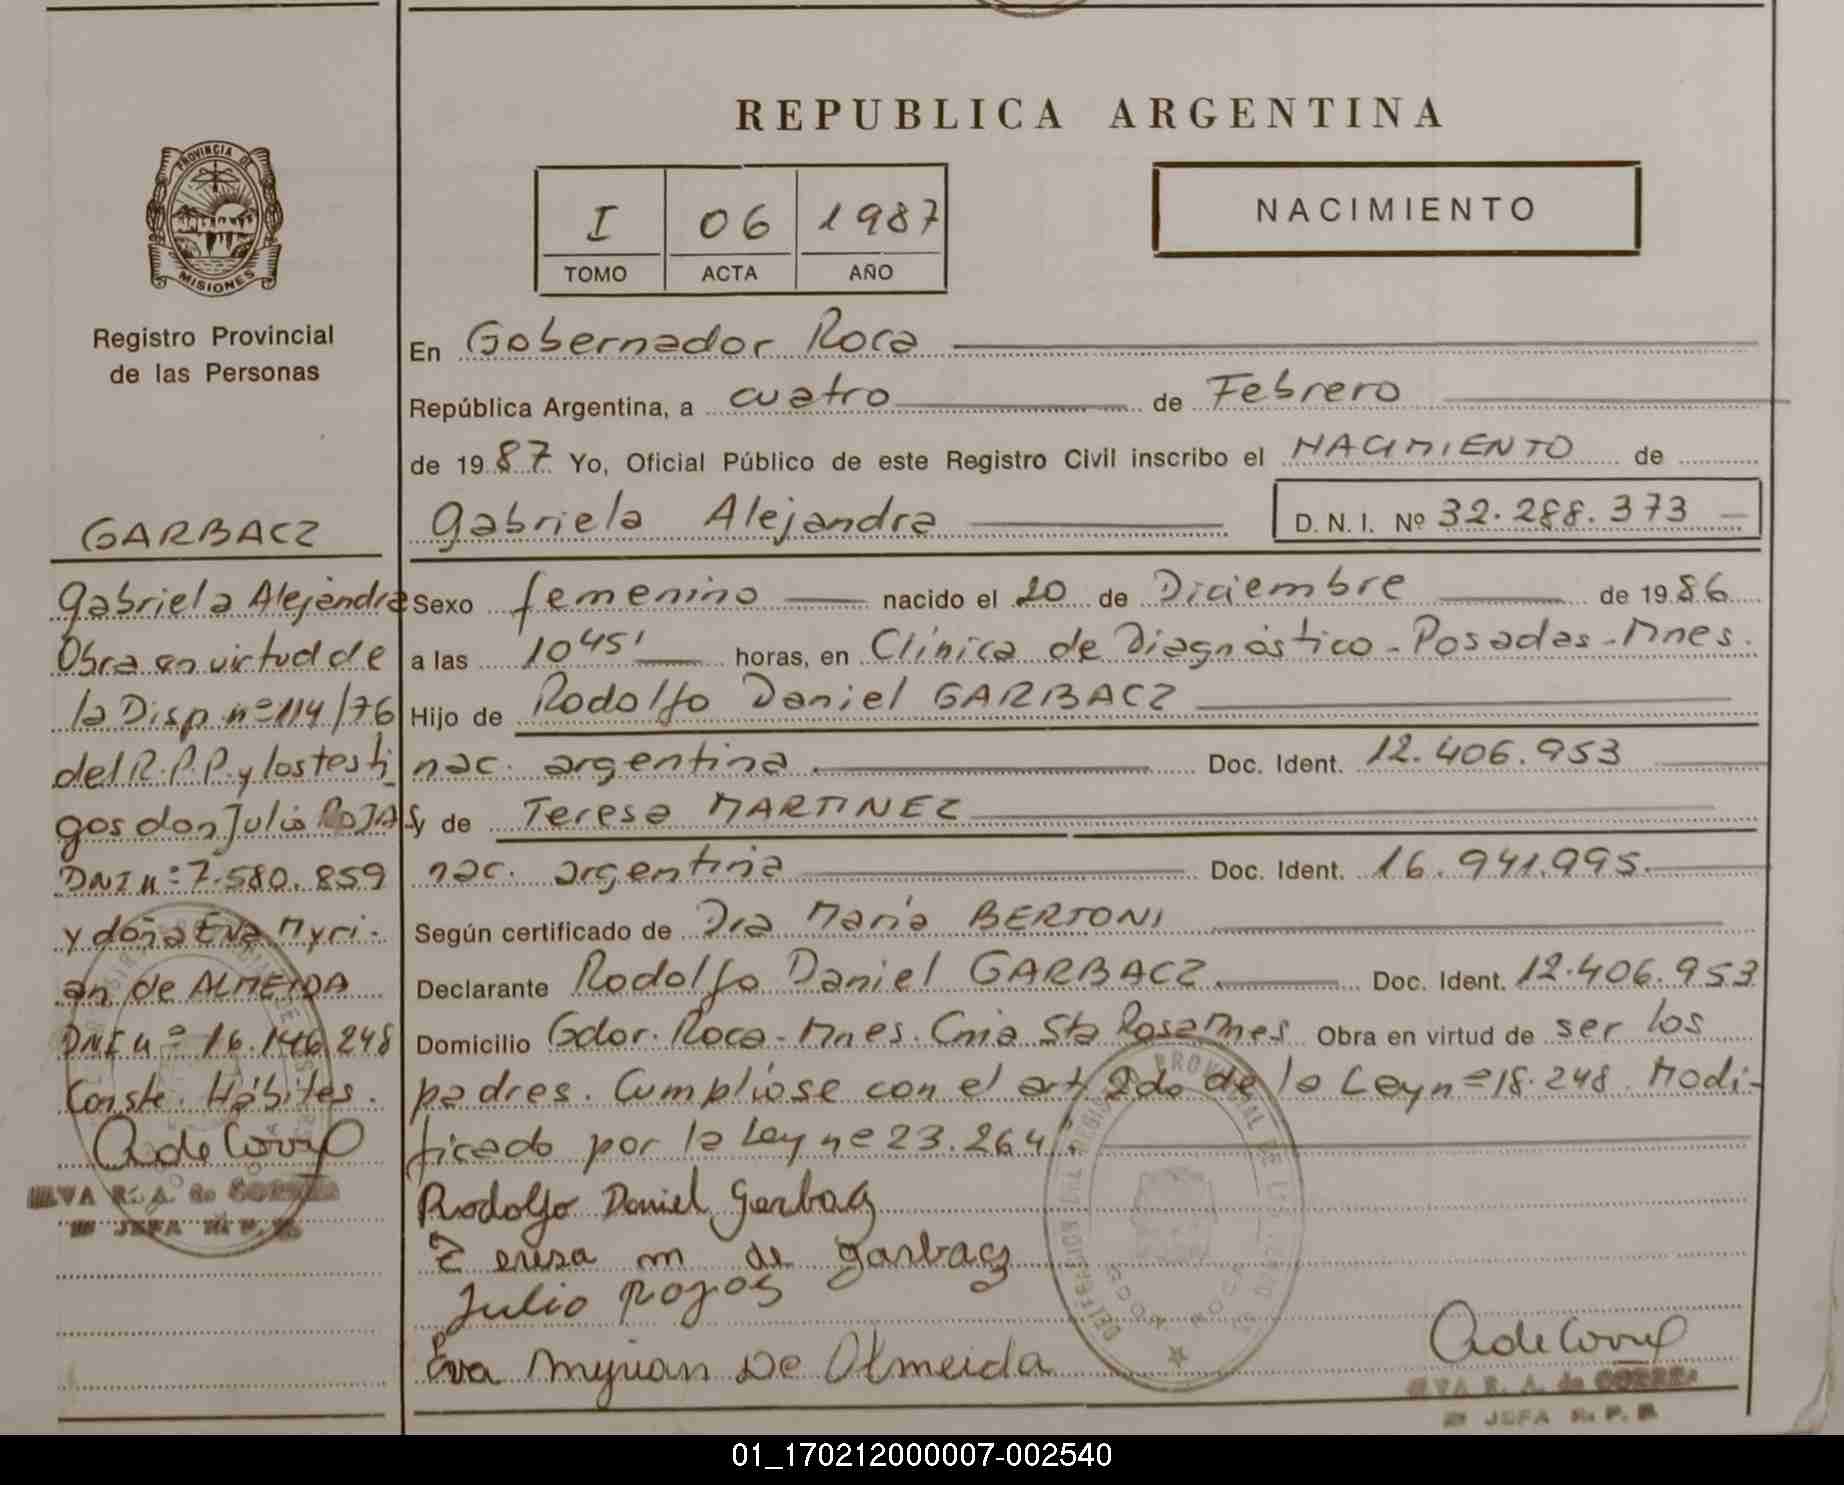 REPUBLICA ARGENTINA
PROVINCIA DE
MISIONES
Registro Provincial
de las Personas
I 06 1987
TOMO ACTA AÑO
NACIMIENTO
En Gobernador Roca
República Argentina, a cuatro de Febrero
de 1987 Yo, Oficial Público de este Registro Civil inscribo el NACIMIENTO de
Gabriela Alejandra D. N. I. Nº 32.288.373
Sexo femenino nacido el 20 de Diciembre de 1986
a las 10 45' horas, en Clínica de Diagnóstico - Posadas - Mnes.
Hijo de Rodolfo Daniel GARBACZ
nac. argentina Doc. Ident. 12.406.953
y de Teresa MARTINEZ
nac. argentina Doc. Ident. 16.941.995.
Según certificado de Dra María BERTONI
Declarante Rodolfo Daniel GARBACZ Doc. Ident. 12.406.953
Domicilio Gdor. Roca - Mnes. Cnia Sta Rosa Mnes Obra en virtud de ser los
padres. Cumpliose con el art 2do de la Ley nº 18.248 Modi-
ficado por la Ley nº 23.264.
Rodolfo Daniel Garbacz
Teresa m de garbacz
Julio Rojas
Eva Myrian De Almeida
GARBACZ
Gabriela Alejandra
Obra en virtud de
la Disp nº 114/76
del R.P.P. y los testi-
gos don Julio ROJAS
DNI nº 7.580.859
y doña Eva Myri-
an de ALMEIDA
DNI nº 16.146.248
Conste. Hábiles.
R. A. de CORREA
JEFA
R. A. de CORREA
JEFA
01_170212000007-002540